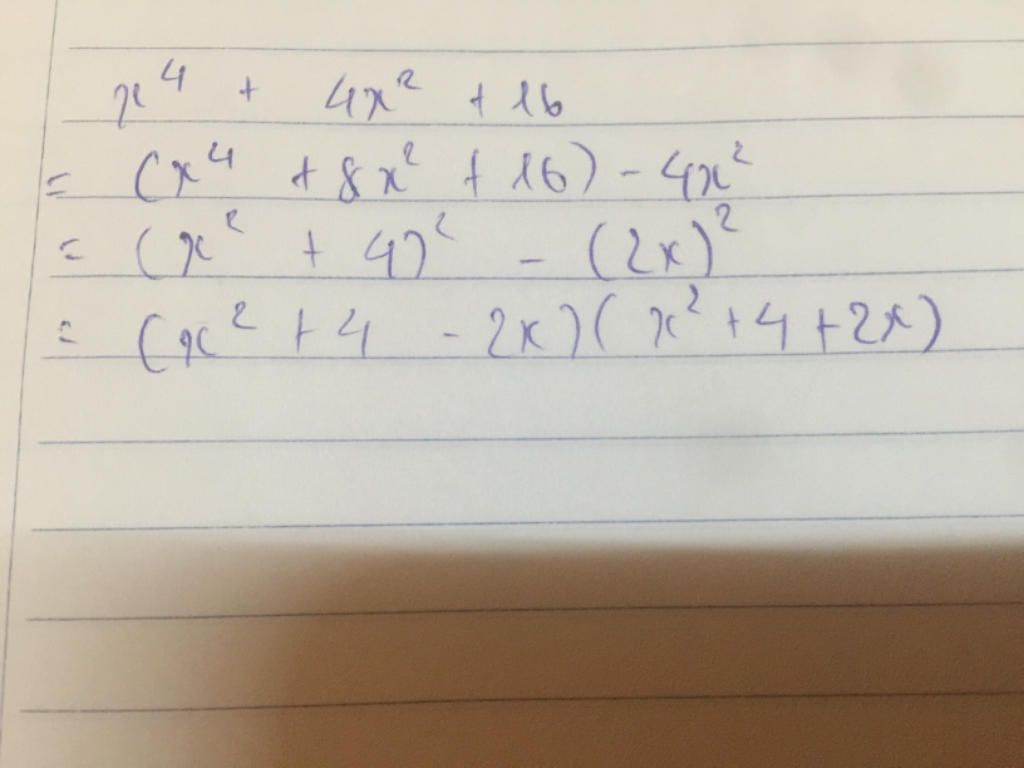 x⁴ + 4x² + 16
= (x⁴ + 8x² + 16) - 4x²
= (x² + 4)² - (2x)²
= (x² + 4 - 2x)(x² + 4 + 2x)